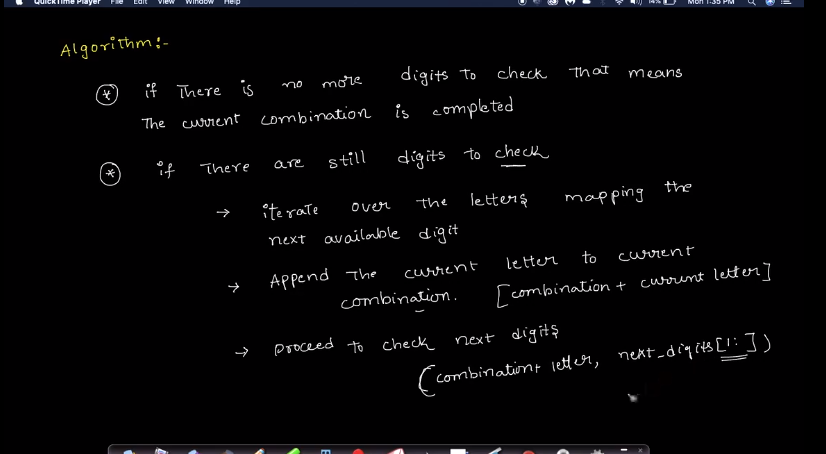 QuickTime Player File Edit View Window Help 14% Mon 1:35 PM
Algorithm:-
* if There is no more digits to check That means
The current combination is completed
* if There are still digits to check
→ iterate over the letters mapping the
next available digit
→ Append The current letter to current
combination. [combination + current letter]
→ proceed to check next digits
(combination+ letter, next_digits[1:])